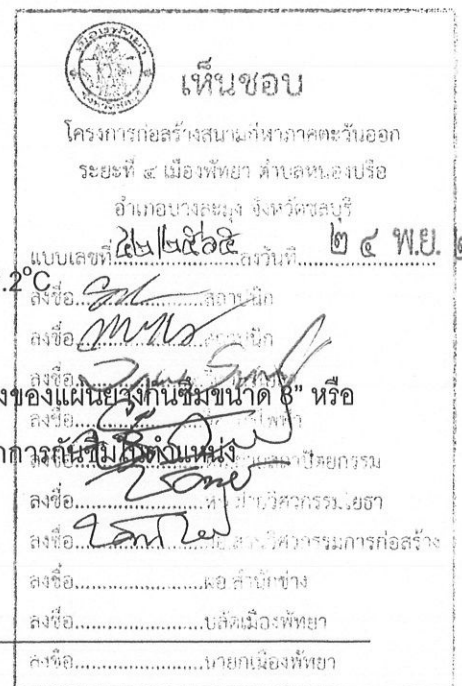 เมืองพัทยา
เห็นชอบ
โครงการก่อสร้างสนามกีฬาภาคตะวันออก
ระยะที่ ๔ เมืองพัทยา ตำบลหนองปรือ
อำเภอบางละมุง จังหวัดชลบุรี
แบบเลขที่ ๕๒/๒๕๖๕ ลงวันที่ ๒๔ พ.ย.
.2°C
ลงชื่อ....................สถาปนิก
ลงชื่อ....................สถาปนิก
ลงชื่อ
ของแผ่นยางกันซึมขนาด 8" หรือ
ลงชื่อ
การกันซึมในตำแหน่ง
สถาปัตยกรรม
ลงชื่อ....................วิศวกรรมโยธา
ลงชื่อ....................วิศวกรรมการก่อสร้าง
ลงชื่อ....................ผอ.สำนักช่าง
ลงชื่อ....................ปลัดเมืองพัทยา
ลงชื่อ....................นายกเมืองพัทยา